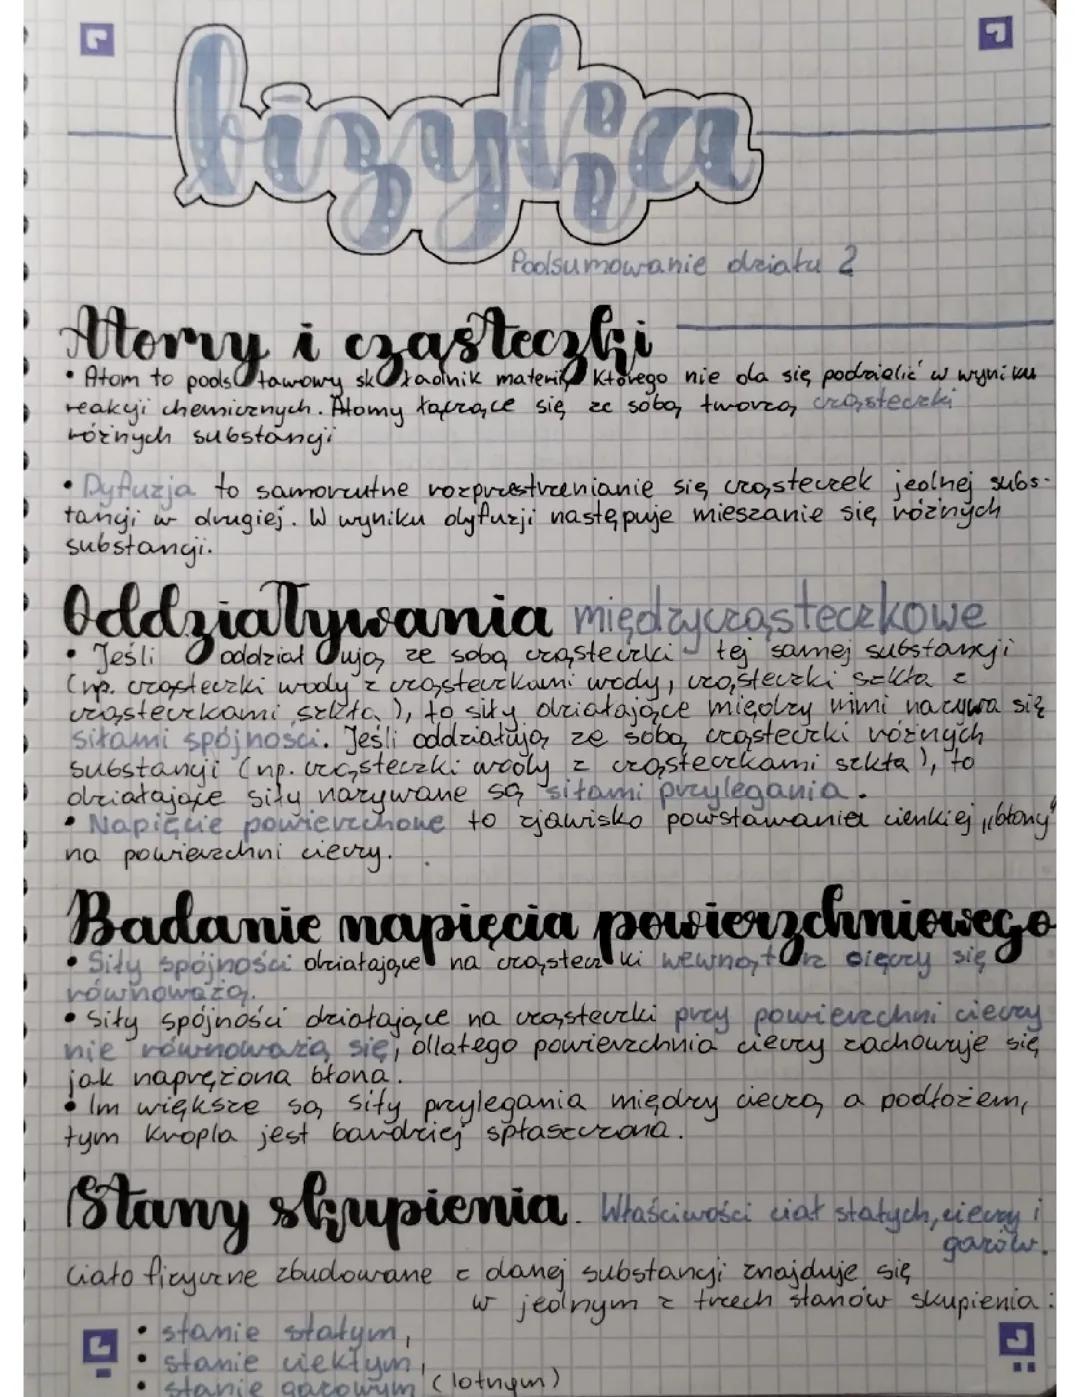 fizyka
Podsumowanie działu 2
Atomy i cząsteczki
• Atom to podstawowy składnik materii, którego nie da się podzielić w wyniku
reakcji chemicznych. Atomy łączące się ze sobą tworzą cząsteczki
różnych substancji
• Dyfuzja to samorzutne rozprzestrzenianie się cząsteczek jednej subs-
tancji w drugiej. W wyniku dyfuzji następuje mieszanie się różnych
substancji.
Oddziaływania międzycząsteczkowe
• Jeśli oddziałują ze sobą cząsteczki tej samej substancji
(np. cząsteczki wody z cząsteczkami wody, cząsteczki szkła z
cząsteczkami szkła), to siły działające między nimi nazywa się
siłami spójności. Jeśli oddziałują ze sobą cząsteczki różnych
substancji (np. cząsteczki wody z cząsteczkami szkła), to
działające siły nazywane są siłami przylegania.
• Napięcie powierzchowe to zjawisko powstawania cienkiej „błony"
na powierzchni cieczy.
Badanie napięcia powierzchniowego
• Siły spójności działające na cząsteczki wewnątrz cieczy się
równoważą.
• Siły spójności działające na cząsteczki przy powierzchni cieczy
nie równoważą się, dlatego powierzchnia cieczy zachowuje się
jak naprężona błona.
• Im większe są siły przylegania między cieczą a podłożem,
tym kropla jest bardziej spłaszczona.
Stany skupienia. Właściwości ciał stałych, cieczy i
gazów.
Ciało fizyczne zbudowane z danej substancji znajduje się
w jednym z trzech stanów skupienia:
• stanie stałym,
• stanie ciekłym,
• stanie gazowym (lotnym)